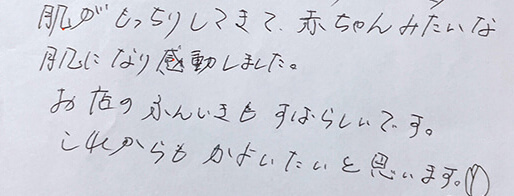 肌がもっちりしてきて、赤ちゃんみたいな
肌になり感動しました。
お店のふんいきもすばらしいです。
これからもかよいたいと思います。